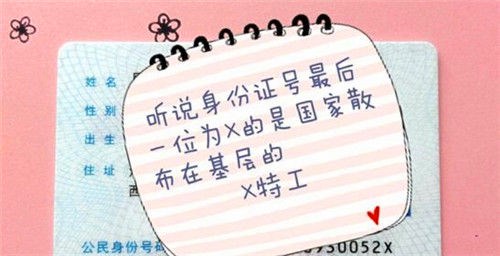 姓名
性别
出生
住址
西
听说身份证号最后
一位为X的是国家散
布在基层的
X特工
公民身份号码
30052X